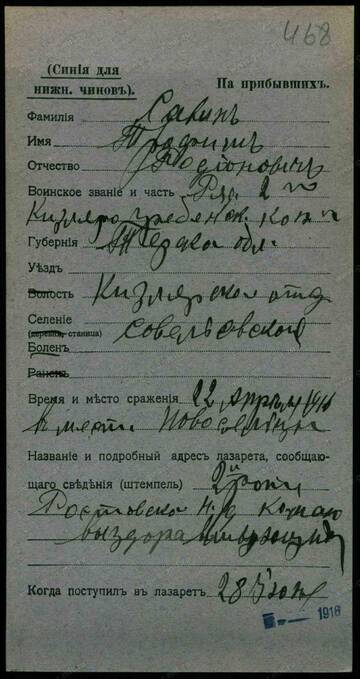 468
(Синія для
нижн. чиновъ).
На прибывшихъ.
Фамилія Савинъ
Имя Трофимъ
Отчество Родіоновичъ
Воинское званіе и часть Ряд. 2го
Кизляро-Гребенск. кон п
Губернія Терская обл.
Уѣздъ
Волость Кизлярской отд
Селеніе
(деревня, станица)
Боленъ
Раненъ
Время и мѣсто сраженія 22 Апрѣля 1916
в мести Новоселицы
Названіе и подробный адресъ лазарета, сообщаю-
щаго свѣдѣнія (штемпель) 2й роты
Ростовско н/д команд
выздоравливающихъ
Когда поступилъ въ лазаретъ 28 Іюня
1916